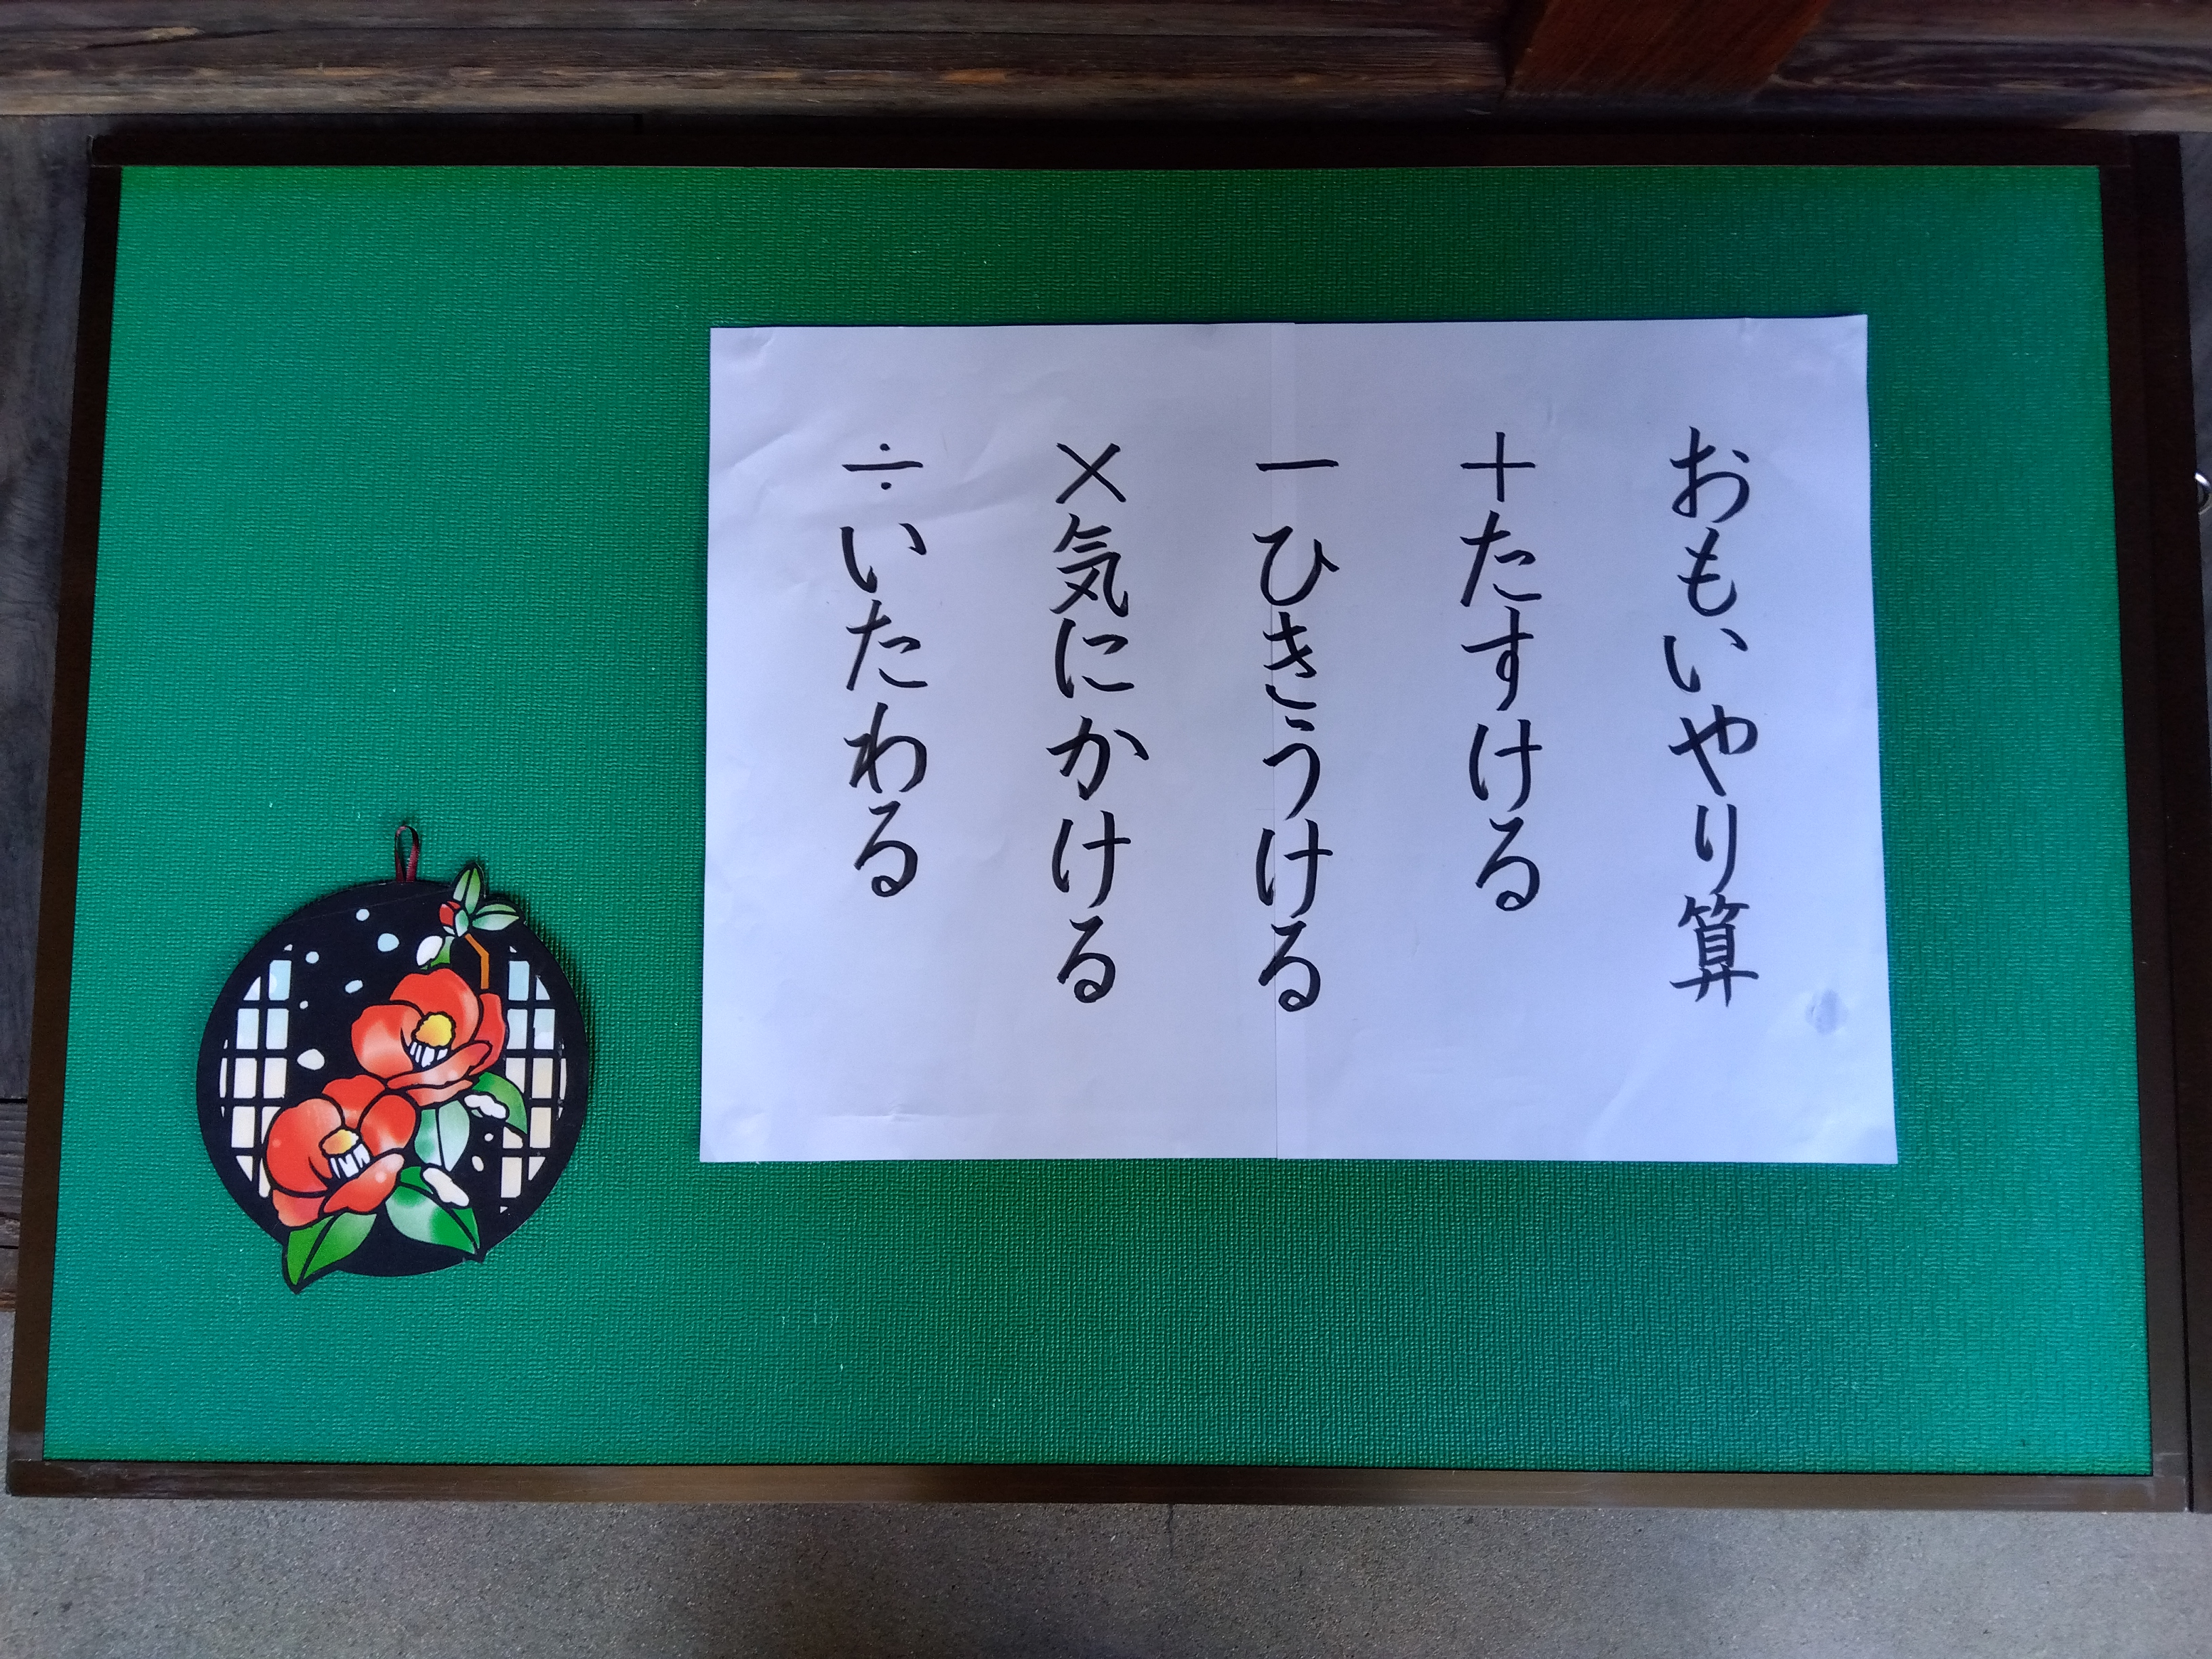 おもいやり算
＋たすける
－ひきうける
×気にかける
÷いたわる